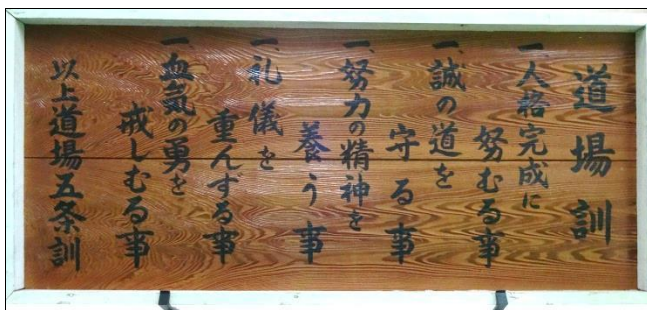 道場訓
一、人格完成に
努むる事
一、誠の道を
守る事
一、努力の精神を
養う事
一、礼儀を
重んずる事
一、血気の勇を
戒しむる事
以上道場五条訓